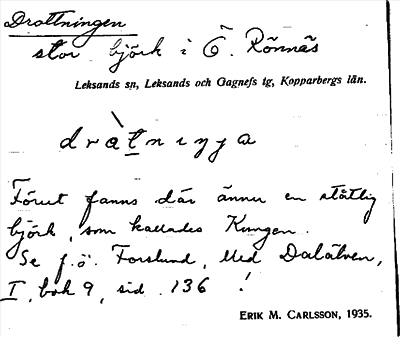 Drottningen
stor björk i Ö. Rönnäs
Leksands sn, Leksands och Gagnefs tg, Kopparbergs län.
Förut fanns där ännu en ståtlig
björk, som kallades Kungen.
Se f. ö. Forslund, Med Dalälven,
I, bok 9, sid. 136 !
ERIK M. CARLSSON, 1935.